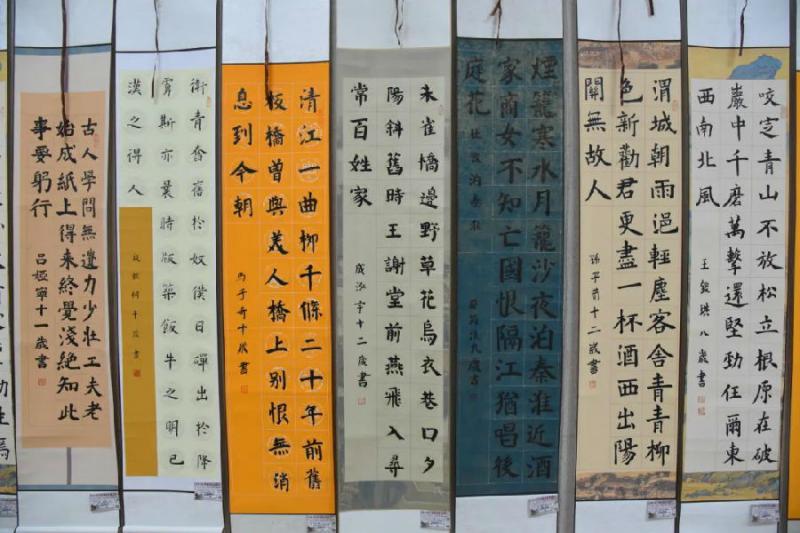 咬定青山不放松立根原在破
巖中千磨萬擊還堅勁任爾東
西南北風
八歲書
渭城朝雨浥輕塵客舍青青柳
色新勸君更盡一杯酒西出陽
關無故人
十二歲書
煙籠寒水月籠沙夜泊秦淮近酒
家商女不知亡國恨隔江猶唱後
庭花
杜牧泊秦淮
九歲書
朱雀橋邊野草花烏衣巷口夕
陽斜舊時王謝堂前燕飛入尋
常百姓家
盛泓宇十二歲書
清江一曲柳千條二十年前舊
板橋曾與美人橋上别恨無消
息到今朝
馬子奇十歲書
衛青奮於奴僕日磾出於降
虜斯亦曩時版築飯牛之明已
漢之得人
古人學問無遺力少壯工夫老
始成紙上得來終覺淺絶知此
事要躬行
呂婭寧十一歲書